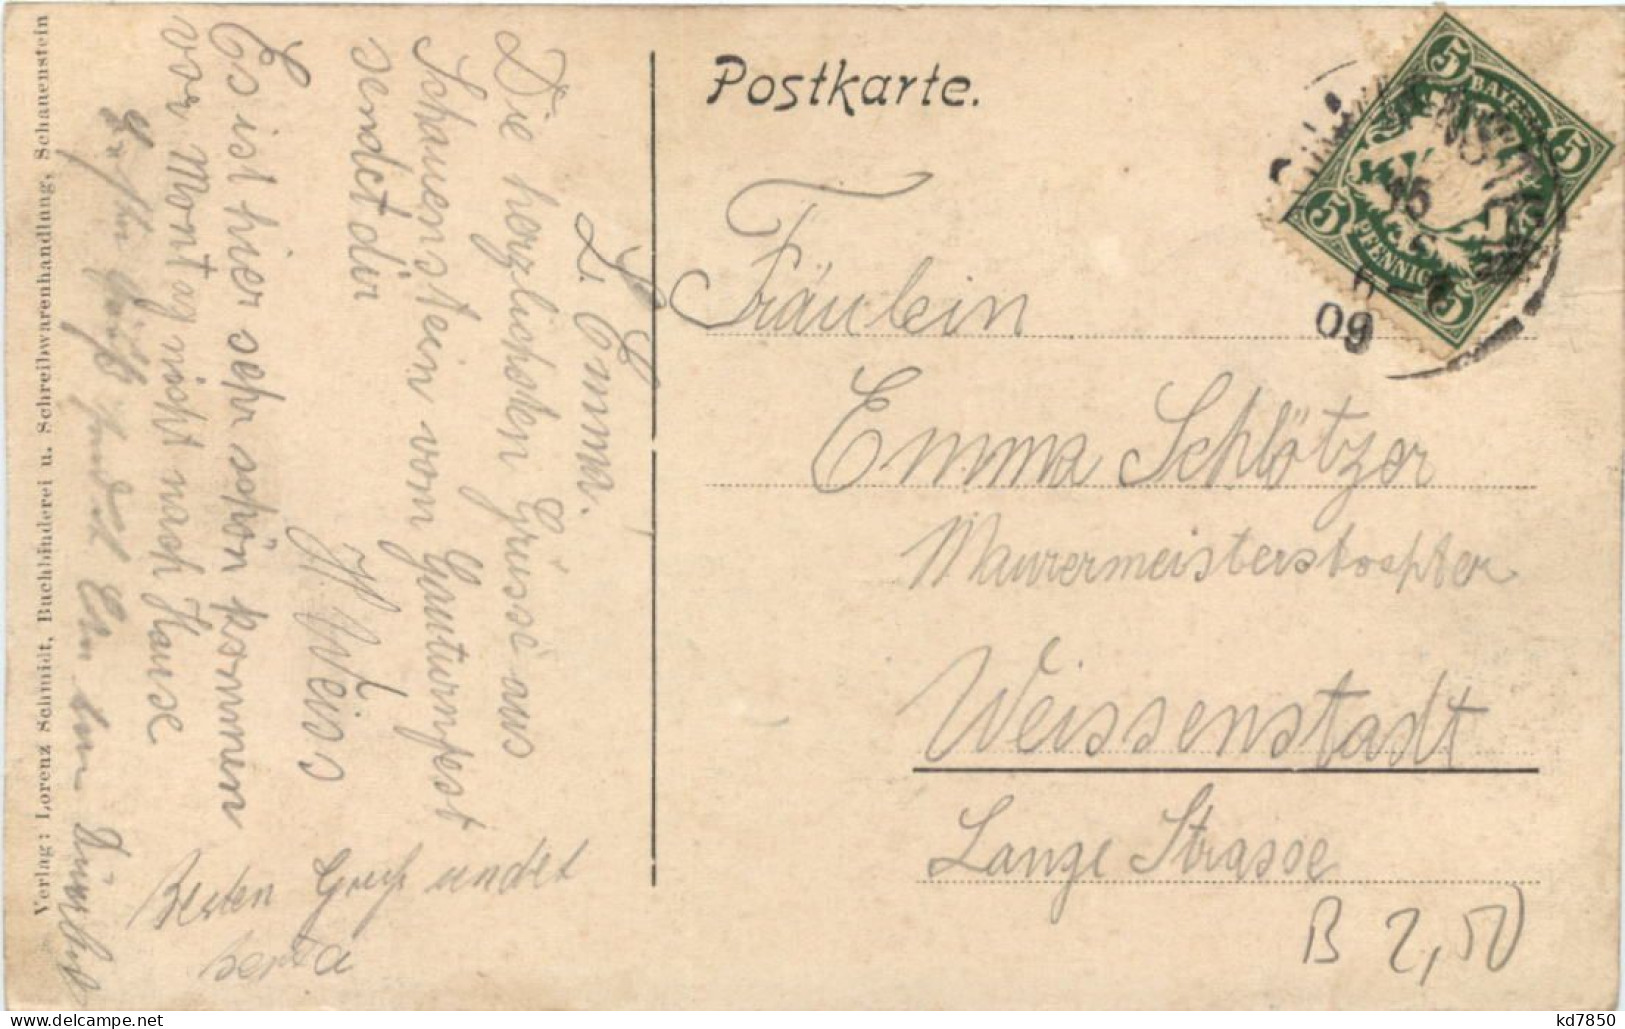 Postkarte.
5 BAYERN 5
5 PFENNIG 5
15
09
Fräulein
Emma Schlötzer
Maurermeisterstochter
Weissenstadt
Lange Strasse
B 2,50
L. Emma.
Die herzlichsten Grüsse aus
Schauenstein vom Gauturnfest
sendet dir
H. Weiss
Es ist hier sehr schön kommen
vor Montag nicht nach Hause
Besten Gruß sendet
Berta
Verlag: Lorenz Schmidt, Buchbinderei u. Schreibwarenhandlung, Schauenstein
kd7850